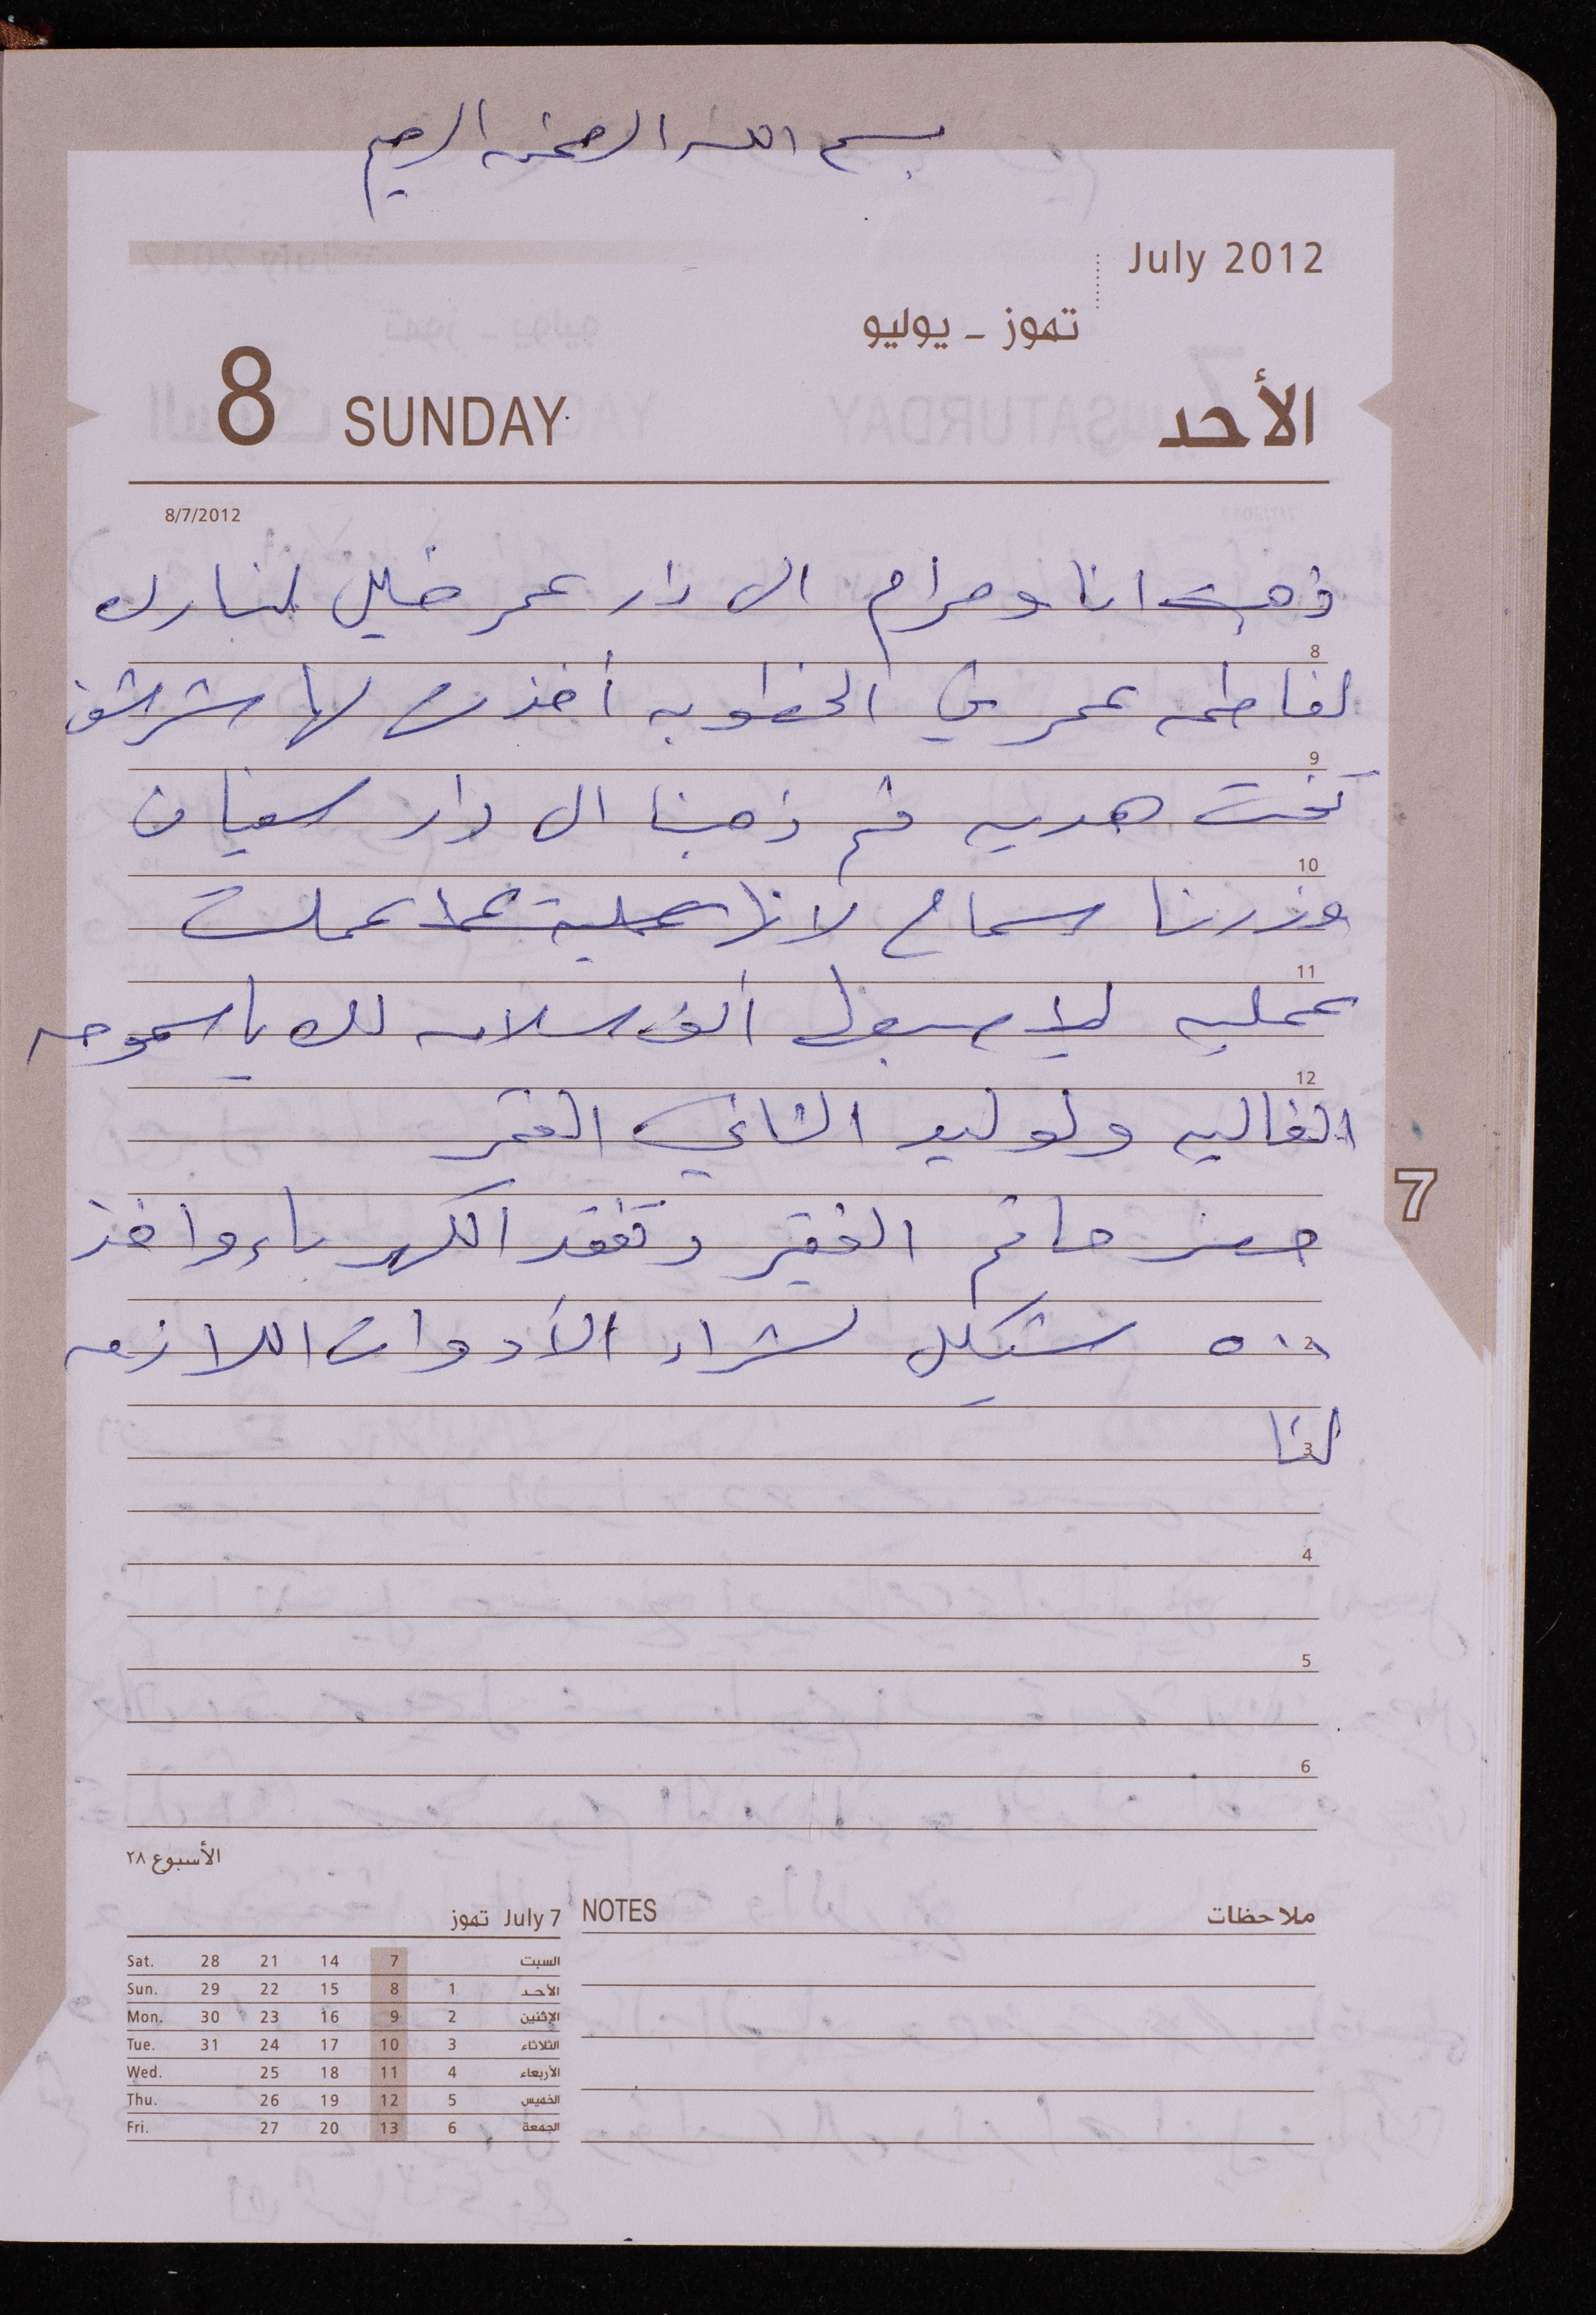 بسم الله الرحمن الرحيم
July 2012
تموز - يوليو
8 SUNDAY الأحد
8/7/2012
ذهبت انا ومرام الى دار عمر خليل لنبارك
8
لفاطمه عمر في الخطوبه أخذت لها شرشف
9
تخت هديه ثم ذهبنا الى دار سفيان
10
وزرنا سماح لانها عملية عملت
11
عمليه ألف سلامه لك يا سموحه
12
الغاليه ولوليد الثاني العمر
7
حضر حاتم الفقير وتفقد الكهرباء واخذ
٥٠٠ شيكل لشراء الأدوات اللازمه
2
لنا
3
4
5
6
الأسبوع ٢٨
July 7 تموز
NOTES ملاحظات
Sat. 28 21 14 7 السبت
Sun. 29 22 15 8 1 الأحد
Mon. 30 23 16 9 2 الإثنين
Tue. 31 24 17 10 3 الثلاثاء
Wed. 25 18 11 4 الأربعاء
Thu. 26 19 12 5 الخميس
Fri. 27 20 13 6 الجمعة